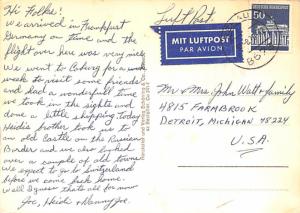 Hi Folks!
We arrived in Frankfurt
Germany on time and the
flight over here was very nice
We went to Coburg for a
week to visit some friends
and had a wonderful time
we took in the sights and
done a little shopping. Today
Heidi's brother took us to
an old Castle on the Russian
Border and we also looked
over a couple of old towns
We expect to go to Switzerland
before we come back home.
Well I guess thats all for now
Joe, Heidi &
Luft Post
MIT LUFTPOST
PAR AVION
50
DEUTSCHE BUNDESPOST
Mr & Mrs John Watt & family
4815 FARMBROOK
DETROIT, MICHIGAN 48224
U.S.A.